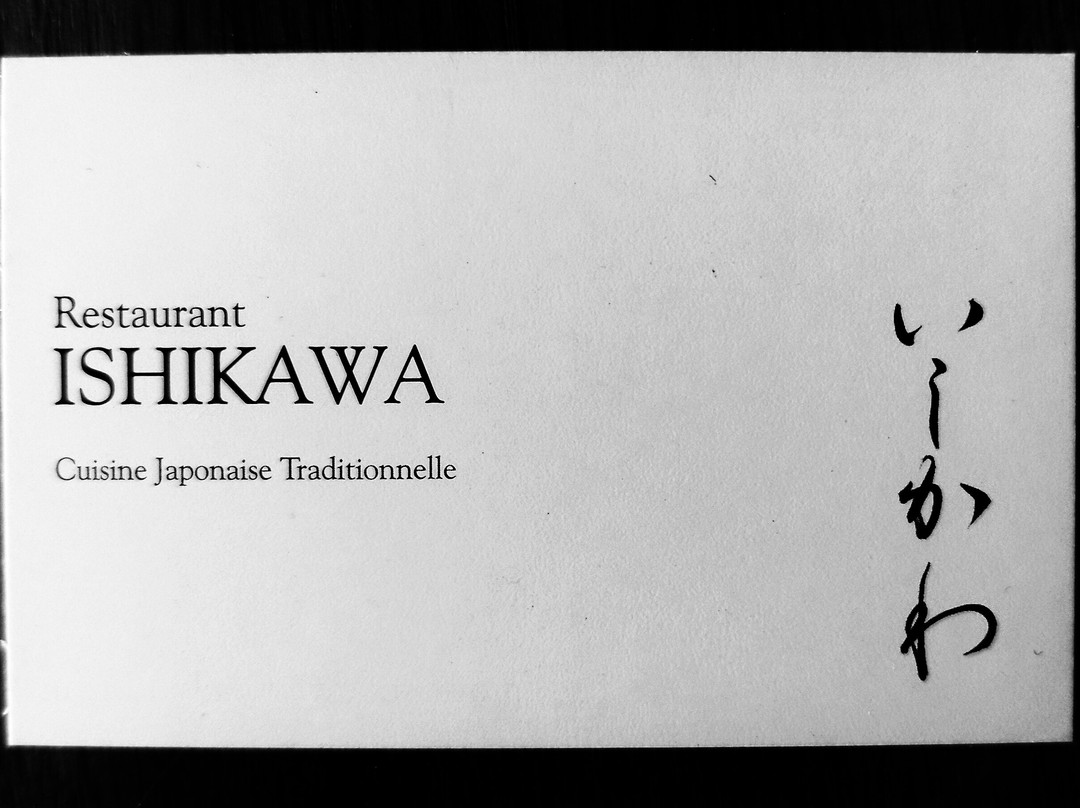 Restaurant
ISHIKAWA
Cuisine Japonaise Traditionnelle
いしかわ